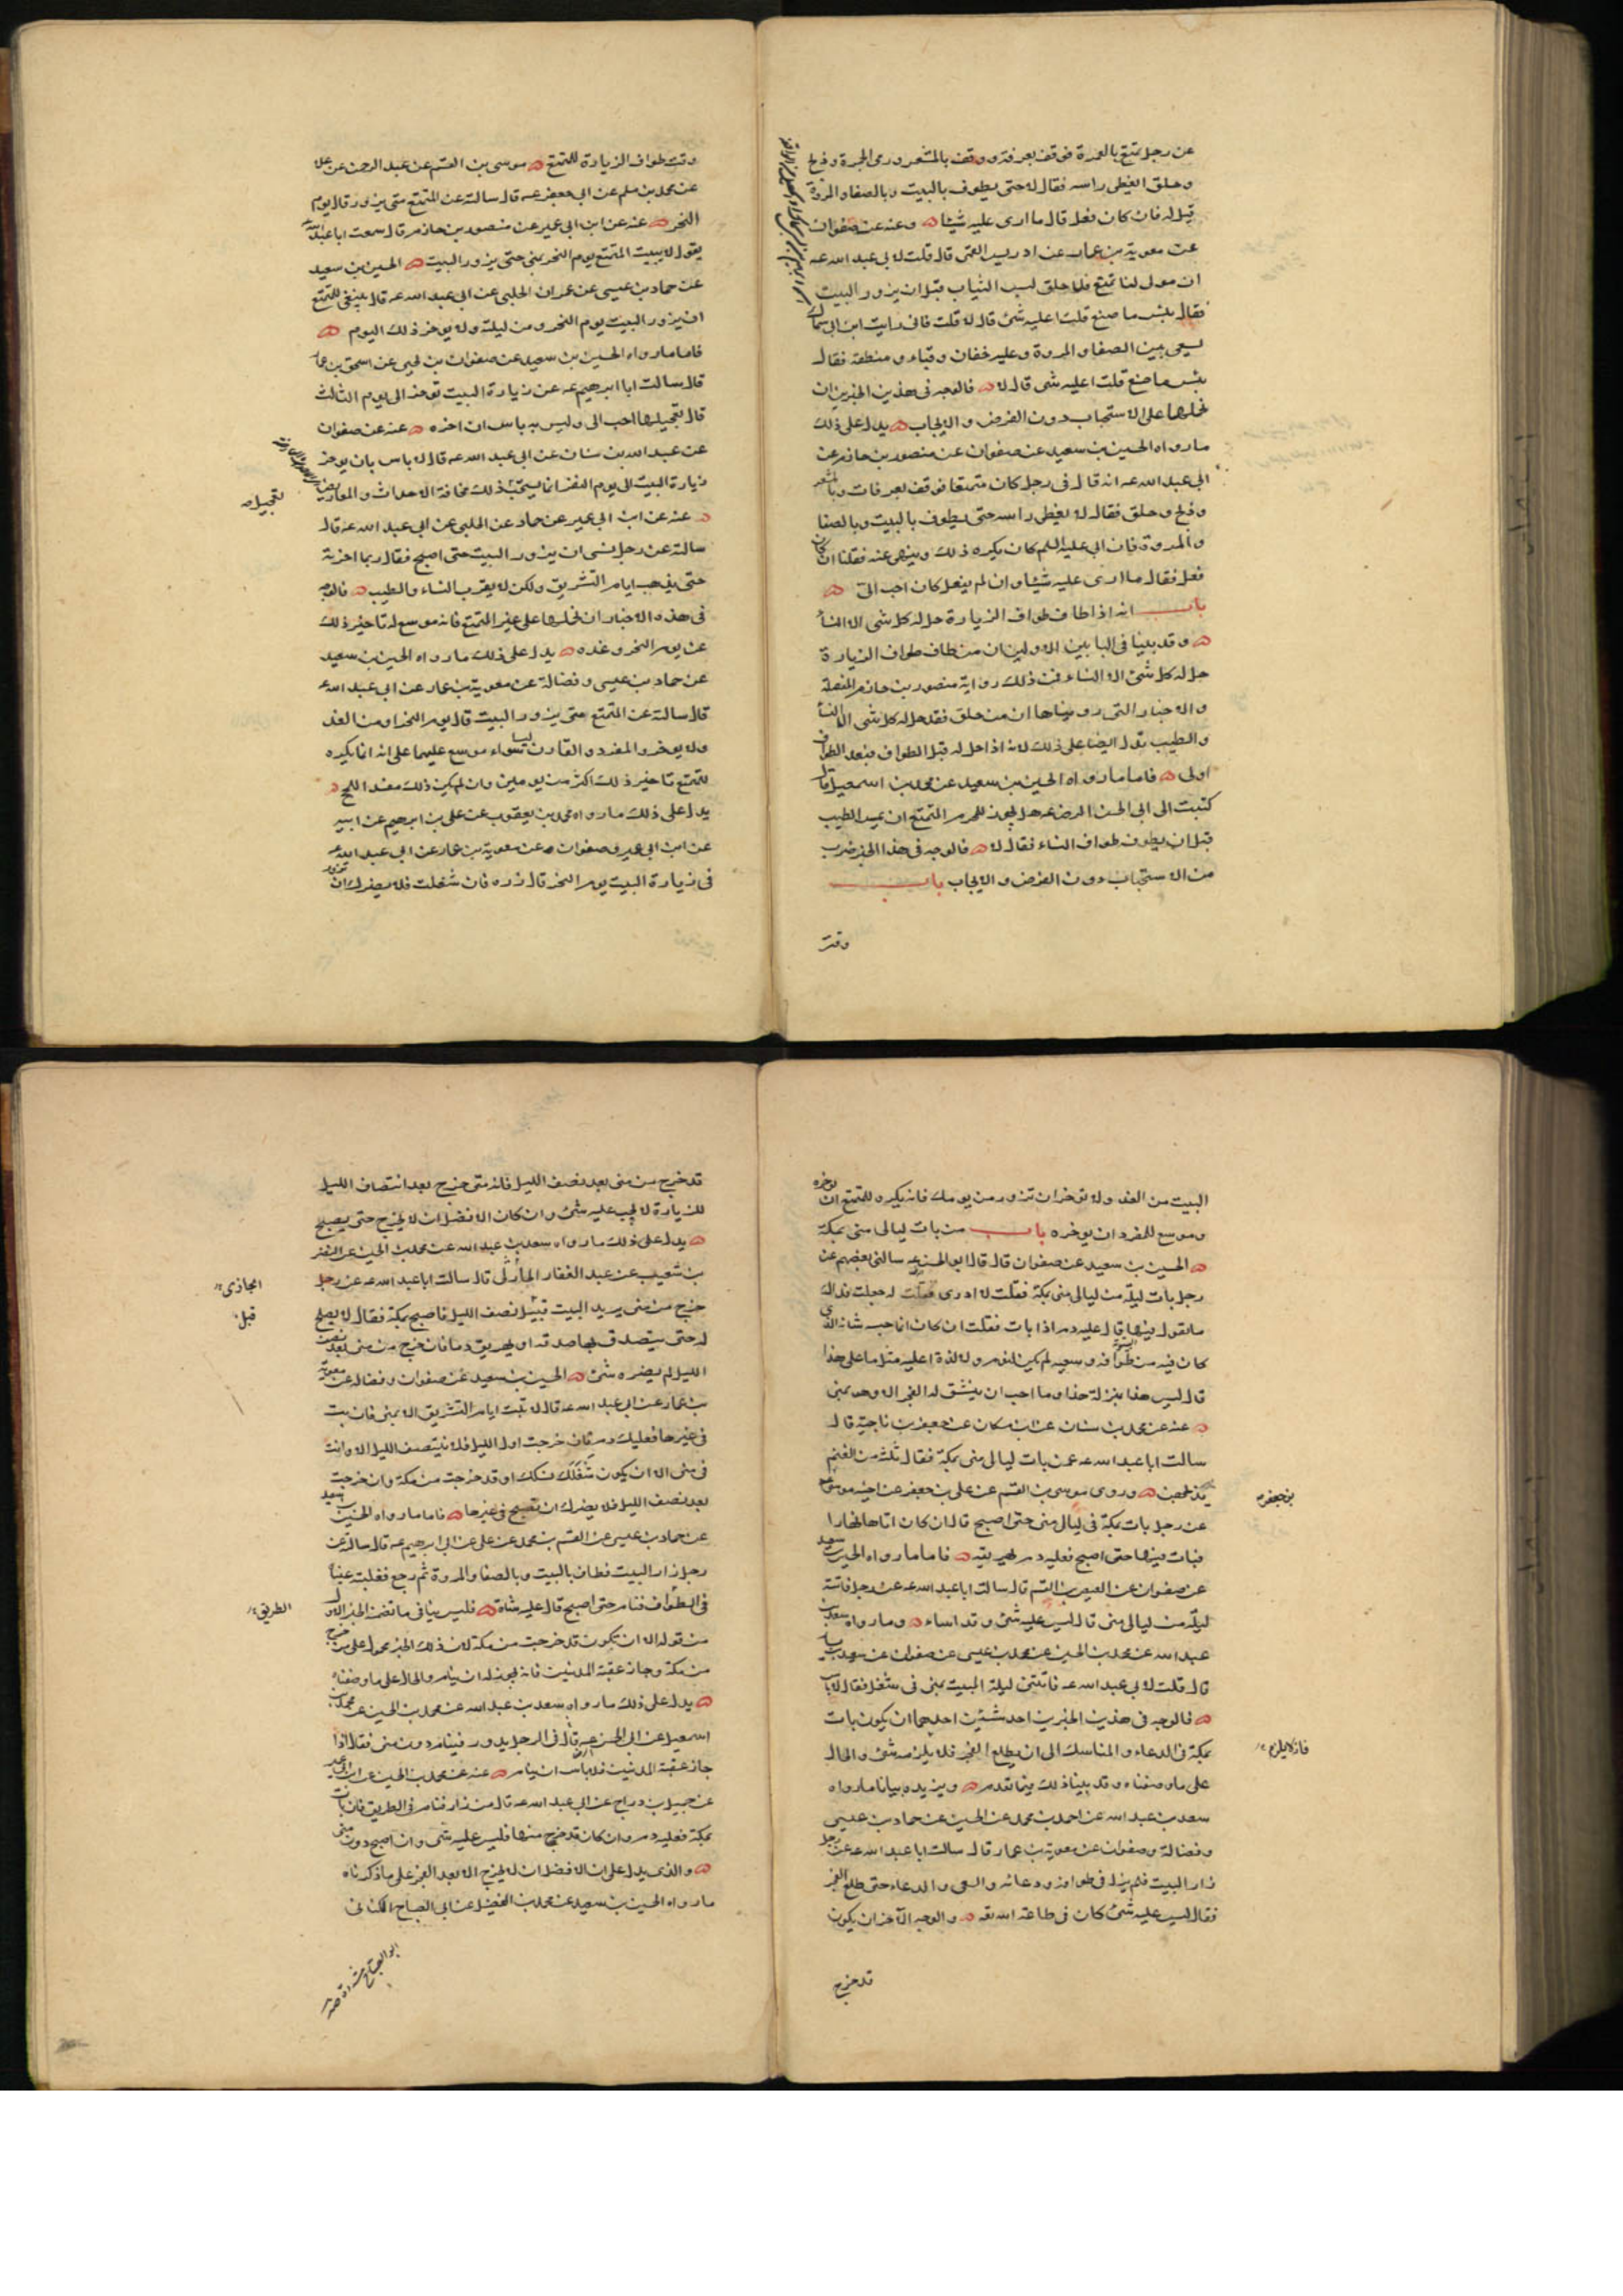 عن رجل تمتع بالعمرة فوقف بعرفة ووقف بالمشعر ورمى الجمرة وذبح
وحلق ايغطى راسه فقال لا حتى يطوف بالبيت وبالصفا والمروة
قيل له فان كان فعل قال ما ارى عليه شيئا وعنه عن صفوان
عن معوية بن عمار عن ادريس القمى قال قلت لابى عبد الله عه
ان مولى لنا تمتع فلما حلق لبس الثياب قبل ان يزور البيت
فقال بئس ما صنع قلت اعليه شئ قال لا قلت فانى رايت ابن ابى سماك
يسعى بين الصفا والمروة وعليه خفان وقباء ومنطقة فقال
بئس ما صنع قلت اعليه شى قال لا فالوجه فى هذين الخبرين ان
نحملهما على الاستحباب دون الفرض والايجاب يدل على ذلك
ما رواه الحسين بن سعيد عن صفوان عن منصور بن حازم عن
ابى عبد الله عه انه قال فى رجل كان متمتعا فوقف بعرفات وبالمشعر
وذبح وحلق فقال لا يغطى راسه حتى يطوف بالبيت وبالصفا
والمروة فان ابى عليه السلم كان يكره ذلك وينهى عنه فقلنا ان كان
فعل فقال ما ارى عليه شيئا وان لم يفعل كان احب الى
باب انه اذا طاف طواف الزيارة حل له كل شى الا النسا
وقد بينا فى البابين الاولين ان من طاف طواف الزيارة
حل له كل شئ الا النساء فمن ذلك رواية منصور بن حازم المفصلة
والاخبار التى رويناها ان من حلق فقد حل له كل شى الا النسا
والطيب تدل ايضا على ذلك لانه اذا حل له قبل الطواف فبعد الطواف
اولى فاما ما رواه الحسين بن سعيد عن محمد بن اسمعيل قال
كتبت الى ابى الحسن الرضا عه هل يجوز للمحرم المتمتع ان يمس الطيب
قبل ان يطوف طواف النساء فقال لا فالوجه فى هذا الخبر ضرب
من الاستحباب دون الفرض والايجاب باب
وقت
وقت طواف الزيارة للمتمتع موسى بن القسم عن عبد الرحمن عن علا
عن محمد بن مسلم عن ابى جعفر عه قال سالته عن المتمتع متى يزور قال يوم
النحر عنه عن ابن ابى عمير عن منصور بن حازم قال سمعت ابا عبد الله
يقول لا يبيت المتمتع يوم النحر بمنى حتى يزور البيت الحسين بن سعيد
عن حماد بن عيسى عن عمران الحلبى عن ابى عبد الله عه قال ينبغى للمتمتع
ان يزور البيت يوم النحر ومن ليلته ولا يوخر ذلك اليوم
فاما ما رواه الحسين بن سعيد عن صفوان بن يحيى عن اسحق بن عمار
قال سالت ابا ابرهيم عه عن زيارة البيت توخر الى يوم الثالث
قال تعجيلها احب الى وليس به باس ان اخره عنه عن صفوان
عن عبد الله بن سنان عن ابى عبد الله عه قال لا باس بان يوخر
زيارة البيت الى يوم النفر انما يستحب ذلك مخافة الاحداث والمعاريض
تعجيل
عنه عن ابن ابى عمير عن حماد عن الحلبى عن ابى عبد الله عه قال
سالته عن رجل نسى ان يزور البيت حتى اصبح فقال ربما اخرته
حتى يذهب ايام التشريق ولكن لا يقرب النساء والطيب فالوجه
فى هذه الاخبار ان نحملها على غير المتمتع فانه موسع له تاخير ذلك
عن يوم النحر وغده يدل على ذلك ما رواه الحسين بن سعيد
عن حماد بن عيسى وفضالة عن معوية بن عمار عن ابى عبد الله عه
قال سالته عن المتمتع متى يزور البيت قال يوم النحر او من الغد
ولا يوخر والمفرد والقارن ليسا بسواء موسع عليهما على انه انما يكره
للمتمتع تاخير ذلك اكثر من يومين وان لم يكن ذلك مفسد الحج
يدل على ذلك ما رواه محمد بن يعقوب عن على بن ابرهيم عن ابيه
عن ابن ابى عمير وصفوان عن معوية بن عمار عن ابى عبد الله عه
فى زيارة البيت يوم النحر قال زره فان شغلت فلا يضرك ان تزور
البيت من الغد ولا توخر ان تزور من يومك فانه يكره للمتمتع ان يوخره
وموسع للمفرد ان يوخره باب من بات ليالى منى بمكة
الحسين بن سعيد عن صفوان قال قال ابو الحسن عه سالنى بعضهم عن
رجل بات ليلة من ليالى منى بمكة فقلت لا ادرى فقلت له جعلت فداك
ما تقول فيها قال عليه دم اذا بات فقلت ان كان انما حبسه شانه الذى
كان فيه من طوافه وسعيه لم يكن لنوم ولا لذة اعليه مثل ما على هذا
قال ليس هذا بمنزلة هذا وما احب ان ينشق له الفجر الا وهو بمنى
عنه عن محمد بن سنان عن ابن مسكان عن جعفر بن ناجية قال
سالت ابا عبد الله عه عمن بات ليالى منى بمكة فقال ثلث من الغنم
يذبحهن وروى موسى بن القسم عن على بن جعفر عن اخيه موسى عه
بن جعفر
عن رجل بات بمكة فى ليالى منى حتى اصبح قال ان كان اتاها نهارا
فبات فيها حتى اصبح فعليه دم يهريقه فاما ما رواه الحسين بن سعيد
عن صفوان عن العيص بن القسم قال سالت ابا عبد الله عه عن رجل فاتته
ليلة من ليالى منى قال ليس عليه شئ وقد اساء وما رواه سعد بن
عبد الله عن محمد بن الحسين عن محمد بن عيسى عن صفوان عن سعيد بن يسار
قال قلت لابى عبد الله عه فاتتنى ليلة المبيت بمنى فى شغل فقال لا باس
فالوجه فى هذين الخبرين احد شيئين احدهما ان يكون بات
بمكة فى الدعاء والمناسك الى ان يطلع الفجر فلا يلزمه شئ والحال
فانه لا يلزمه
على ما وصفناه وقد بينا ذلك فيما تقدم ويزيده بيانا ما رواه
سعد بن عبد الله عن احمد بن محمد عن الحسين عن حماد بن عيسى
وفضالة وصفوان عن معوية بن عمار قال سالت ابا عبد الله عه عن رجل
زار البيت فلم يزل فى طوافه ودعائه والسعى والدعاء حتى طلع الفجر
فقال ليس عليه شئ كان فى طاعة الله تعه والوجه الآخر ان يكون
قد خرج
قد خرج من منى بعد نصف الليل فانه متى خرج بعد انتصاف الليل
للزيارة لا يجب عليه شئ وان كان الافضل ان لا يخرج حتى يصبح
يدل على ذلك ما رواه سعد بن عبد الله عن محمد بن الحسين عن النضر
بن شعيب عن عبد الغفار الجازى قال سالت ابا عبد الله عه عن رجل
الجازى
خرج من منى يريد البيت قبيل نصف الليل فاصبح بمكة فقال لا يصلح
قبل
له حتى يتصدق بها صدقة او يهريق دما فان خرج من منى بعد نصف
الليل لم يضره شئ الحسين بن سعيد عن صفوان وفضالة عن معوية
بن عمار عن ابى عبد الله عه قال لا تبت ايام التشريق الا بمنى فان بت
فى غيرها فعليك دم فان خرجت اول الليل فلا ينتصف الليل الا وانت
فى منى الا ان يكون شغلك نسكك او قد خرجت من مكة وان خرجت
بعد نصف الليل فلا يضرك ان تصبح فى غيرها فاما ما رواه الحسين بن سعيد
عن حماد بن عيسى عن القسم بن محمد عن على عن ابى ابرهيم عه قال سالته عن
رجل زار البيت فطاف بالبيت وبالصفا والمروة ثم رجع فغلبته عينا
فى الطواف فنام حتى اصبح قال عليه شاة فليس ينافى ما تضمنه الخبر الاول
الطريق
من قوله الا ان تكون قد خرجت من مكة لان ذلك الخبر محمول على من خرج
من مكة وجاز عقبة المدنيين فانه يجوز له ان ينام والحال على ما وصفناه
يدل على ذلك ما رواه سعد بن عبد الله عن محمد بن الحسين عن محمد بن
اسمعيل عن ابى الحسن عه قال فى الرجل يزور فينام دون منى فقال اذا
جاز عقبة المدنيين فلا باس ان ينام عنه عن محمد بن الحسين عن ابن ابى عمير
عن جميل بن دراج عن ابى عبد الله عه قال من زار فنام فى الطريق فان بات
بمكة فعليه دم وان كان قد خرج منها فليس عليه شى وان اصبح دون منى
والذى يدل على ان الافضل ان لا يخرج الا بعد الفجر على ما ذكرناه
ما رواه الحسين بن سعيد عن محمد بن الفضيل عن ابى الصباح الكنانى